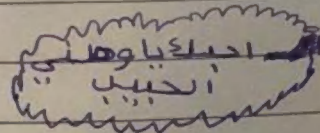 احبك يا وطني
الحبيب